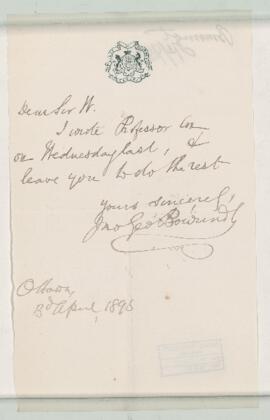 Dear Sir W.
I wrote Professor
on Wednesday last, &
leave you to do the rest
yours sincerely,
Jno Geo Bourinot
Ottawa,
3d April, 1896